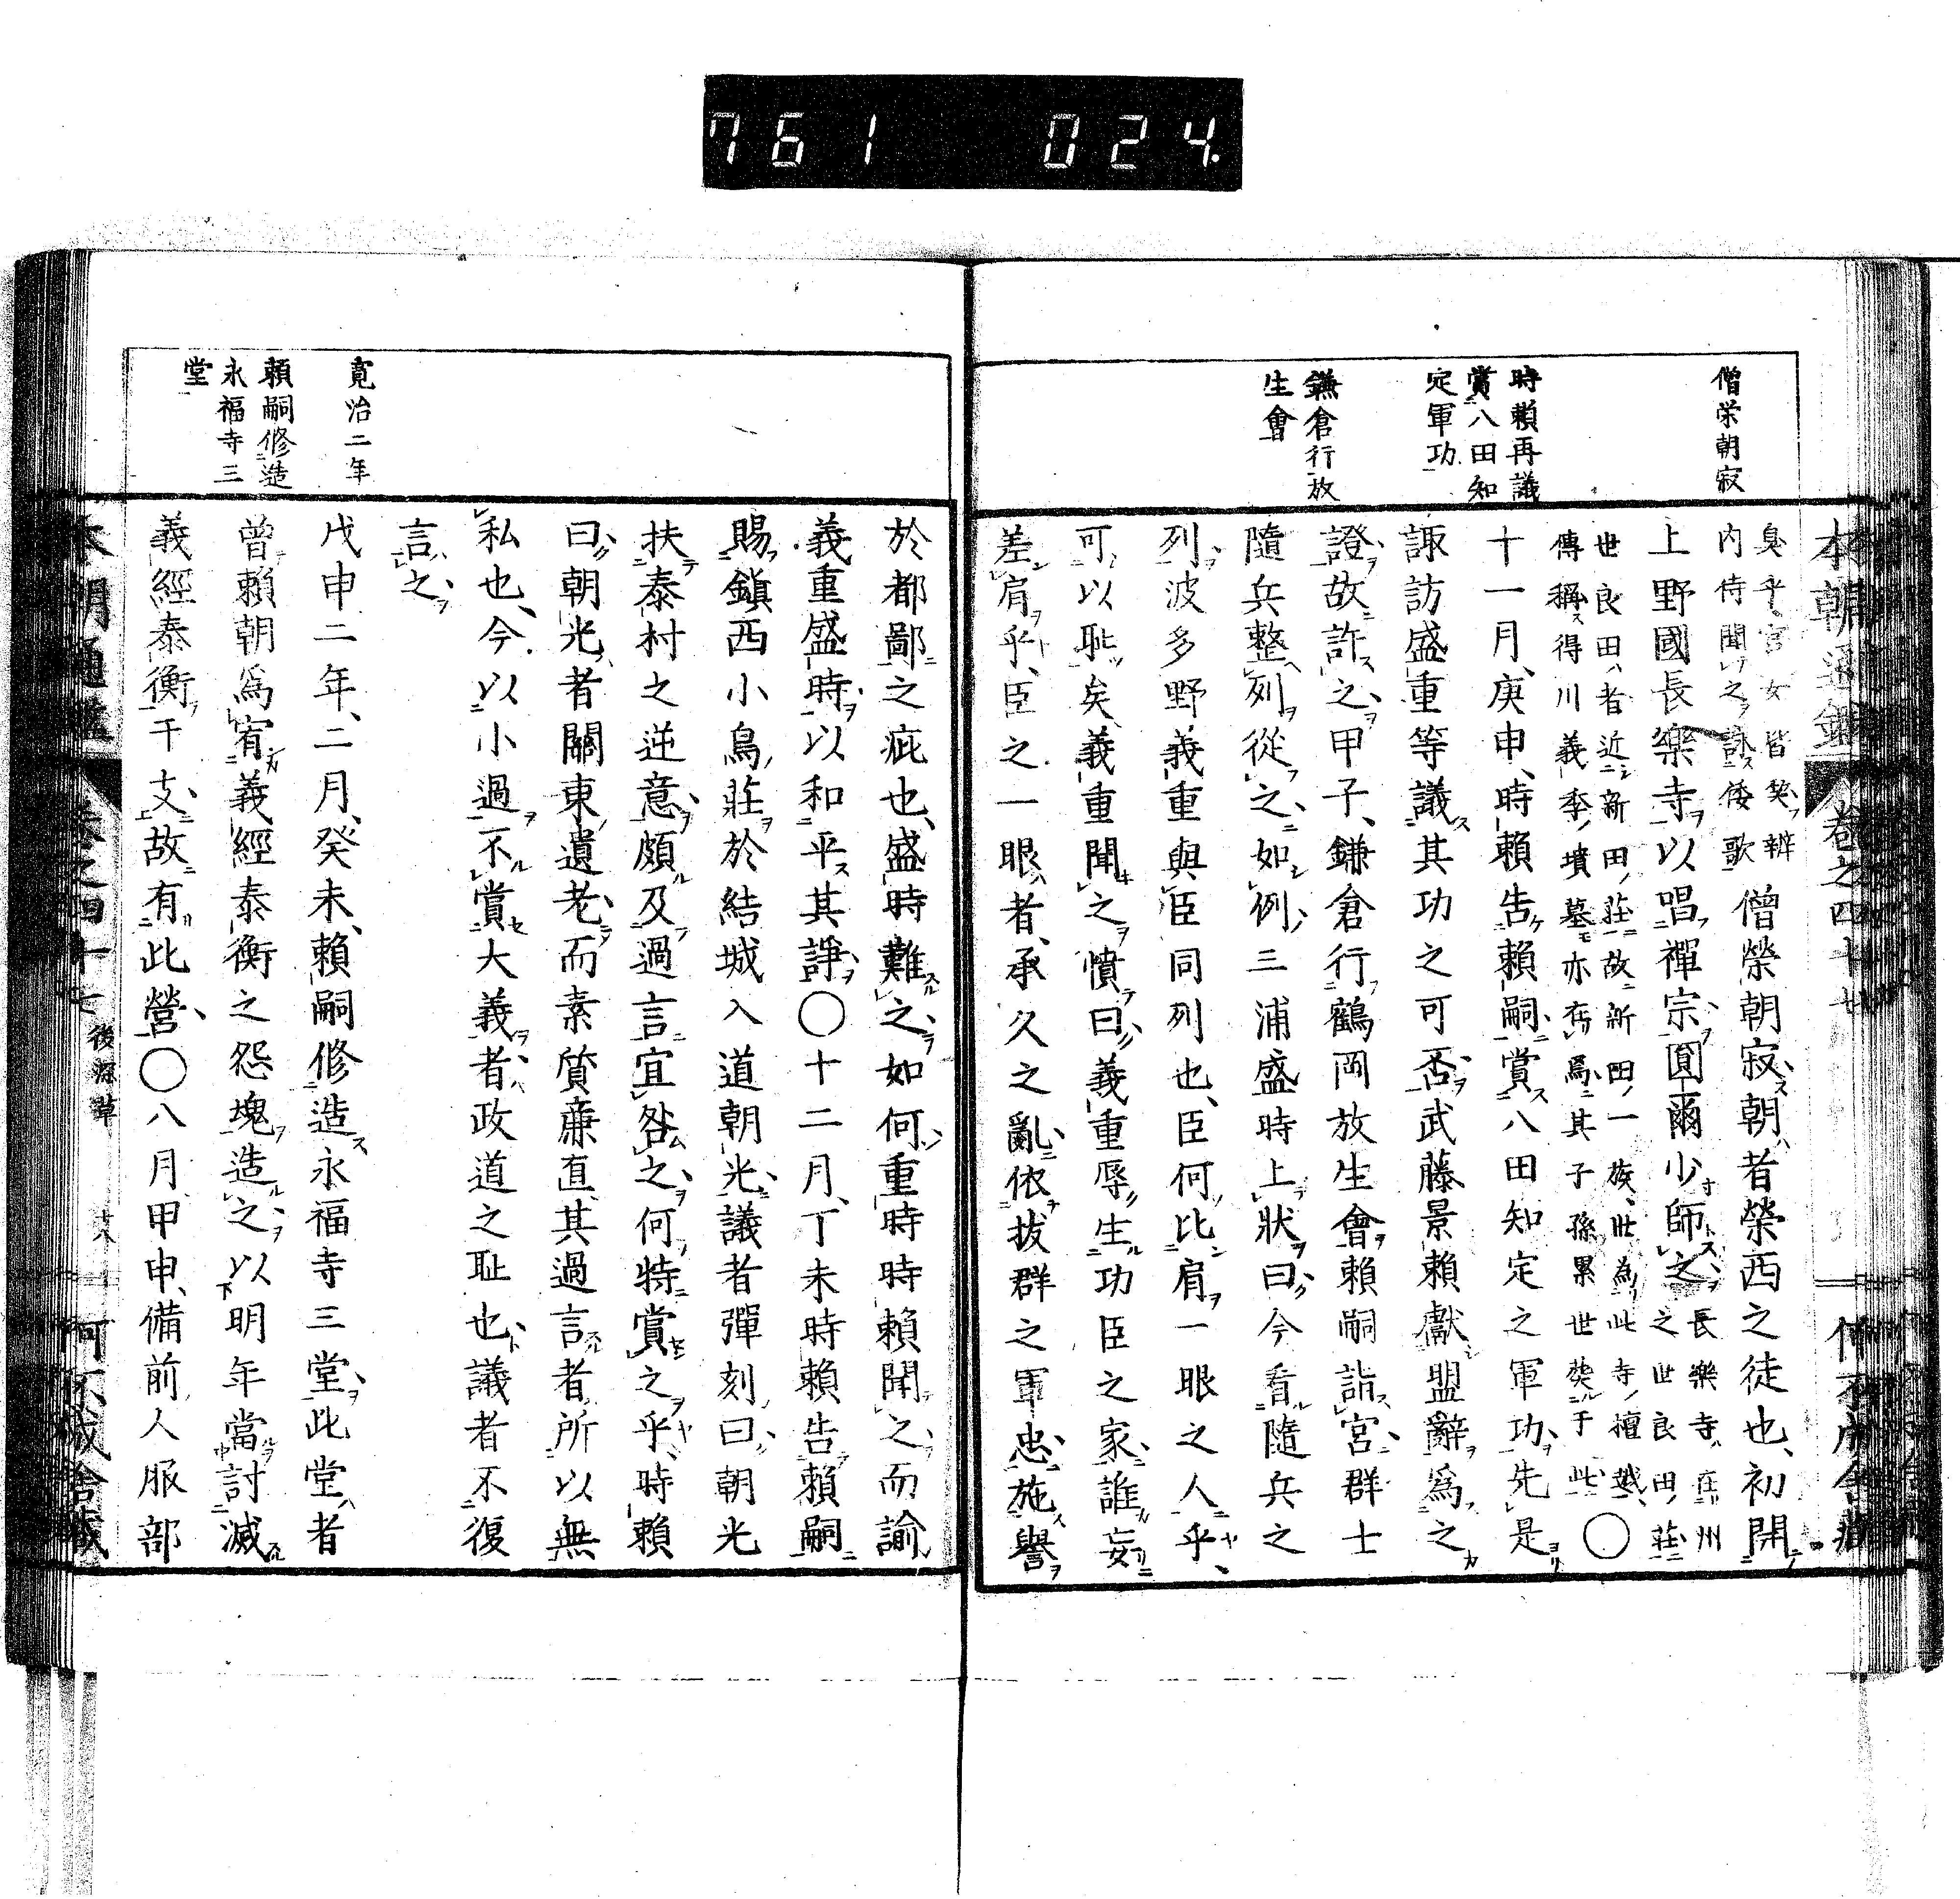 761 024.
僧栄朝寂
時頼再議
賞八田知
定軍功
鎌倉行放
生會
臭乎宮女皆契辨
内侍聞之詠倭歌 僧榮朝寂朝者榮西之徒也初開
上野國長樂寺以唱禪宗圓爾少師之 長樂寺在州
之世良田莊
世良田者近新田莊故新田一族世為此寺檀越
傳稱得川義季墳墓亦在焉其子孫累世葬于此 〇
十一月庚申時頼告頼嗣賞八田知定之軍功先是
諏訪盛重等議其功之可否武藤景頼獻盟辭爲之
證故許之甲子鎌倉行鶴岡放生會頼嗣詣宮群士
隨兵整列從之如例三浦盛時上狀曰今看隨兵之
列波多野義重與臣同列也臣何比肩一眼之人乎
可以耻矣義重聞之憤曰義重辱生功臣之家誰妄
差肩乎臣之一眼者承久之亂依拔群之軍忠施譽
寛治二年
頼嗣修造
永福寺三
堂
於都鄙之疵也盛時難之如何重時時頼聞之而諭
義重盛時以和平其諍〇十二月丁未時頼告頼嗣
賜鎮西小鳥莊於結城入道朝光議者彈刻曰朝光
扶泰村之逆意頗及過言宜咎之何特賞之乎時頼
曰朝光者關東遺老而素質廉直其過言者所以無
私也今以小過不賞大義者政道之耻也議者不復
言之
戊申二年二月癸未頼嗣修造永福寺三堂此堂者
曾頼朝爲宥義經泰衡之怨塊造之以明年當討滅
義經泰衡干支故有此營〇八月甲申備前人服部
本朝通鑑 卷之四十七 後深草 十八